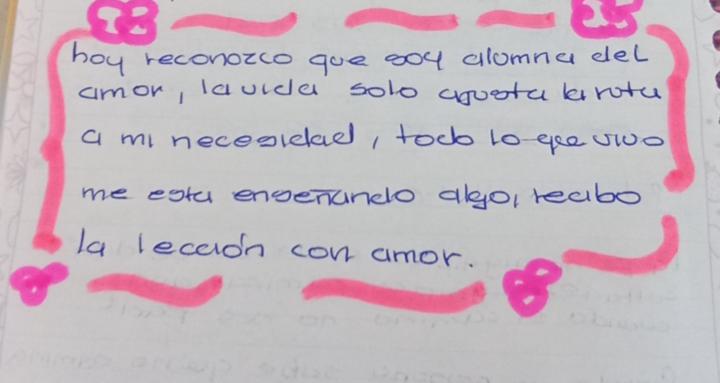 hoy reconozco que soy alumna del
amor, la vida solo ajusta la ruta
a mi necesidad, todo lo que vivo
me esta enseñando algo, recibo
la lección con amor.